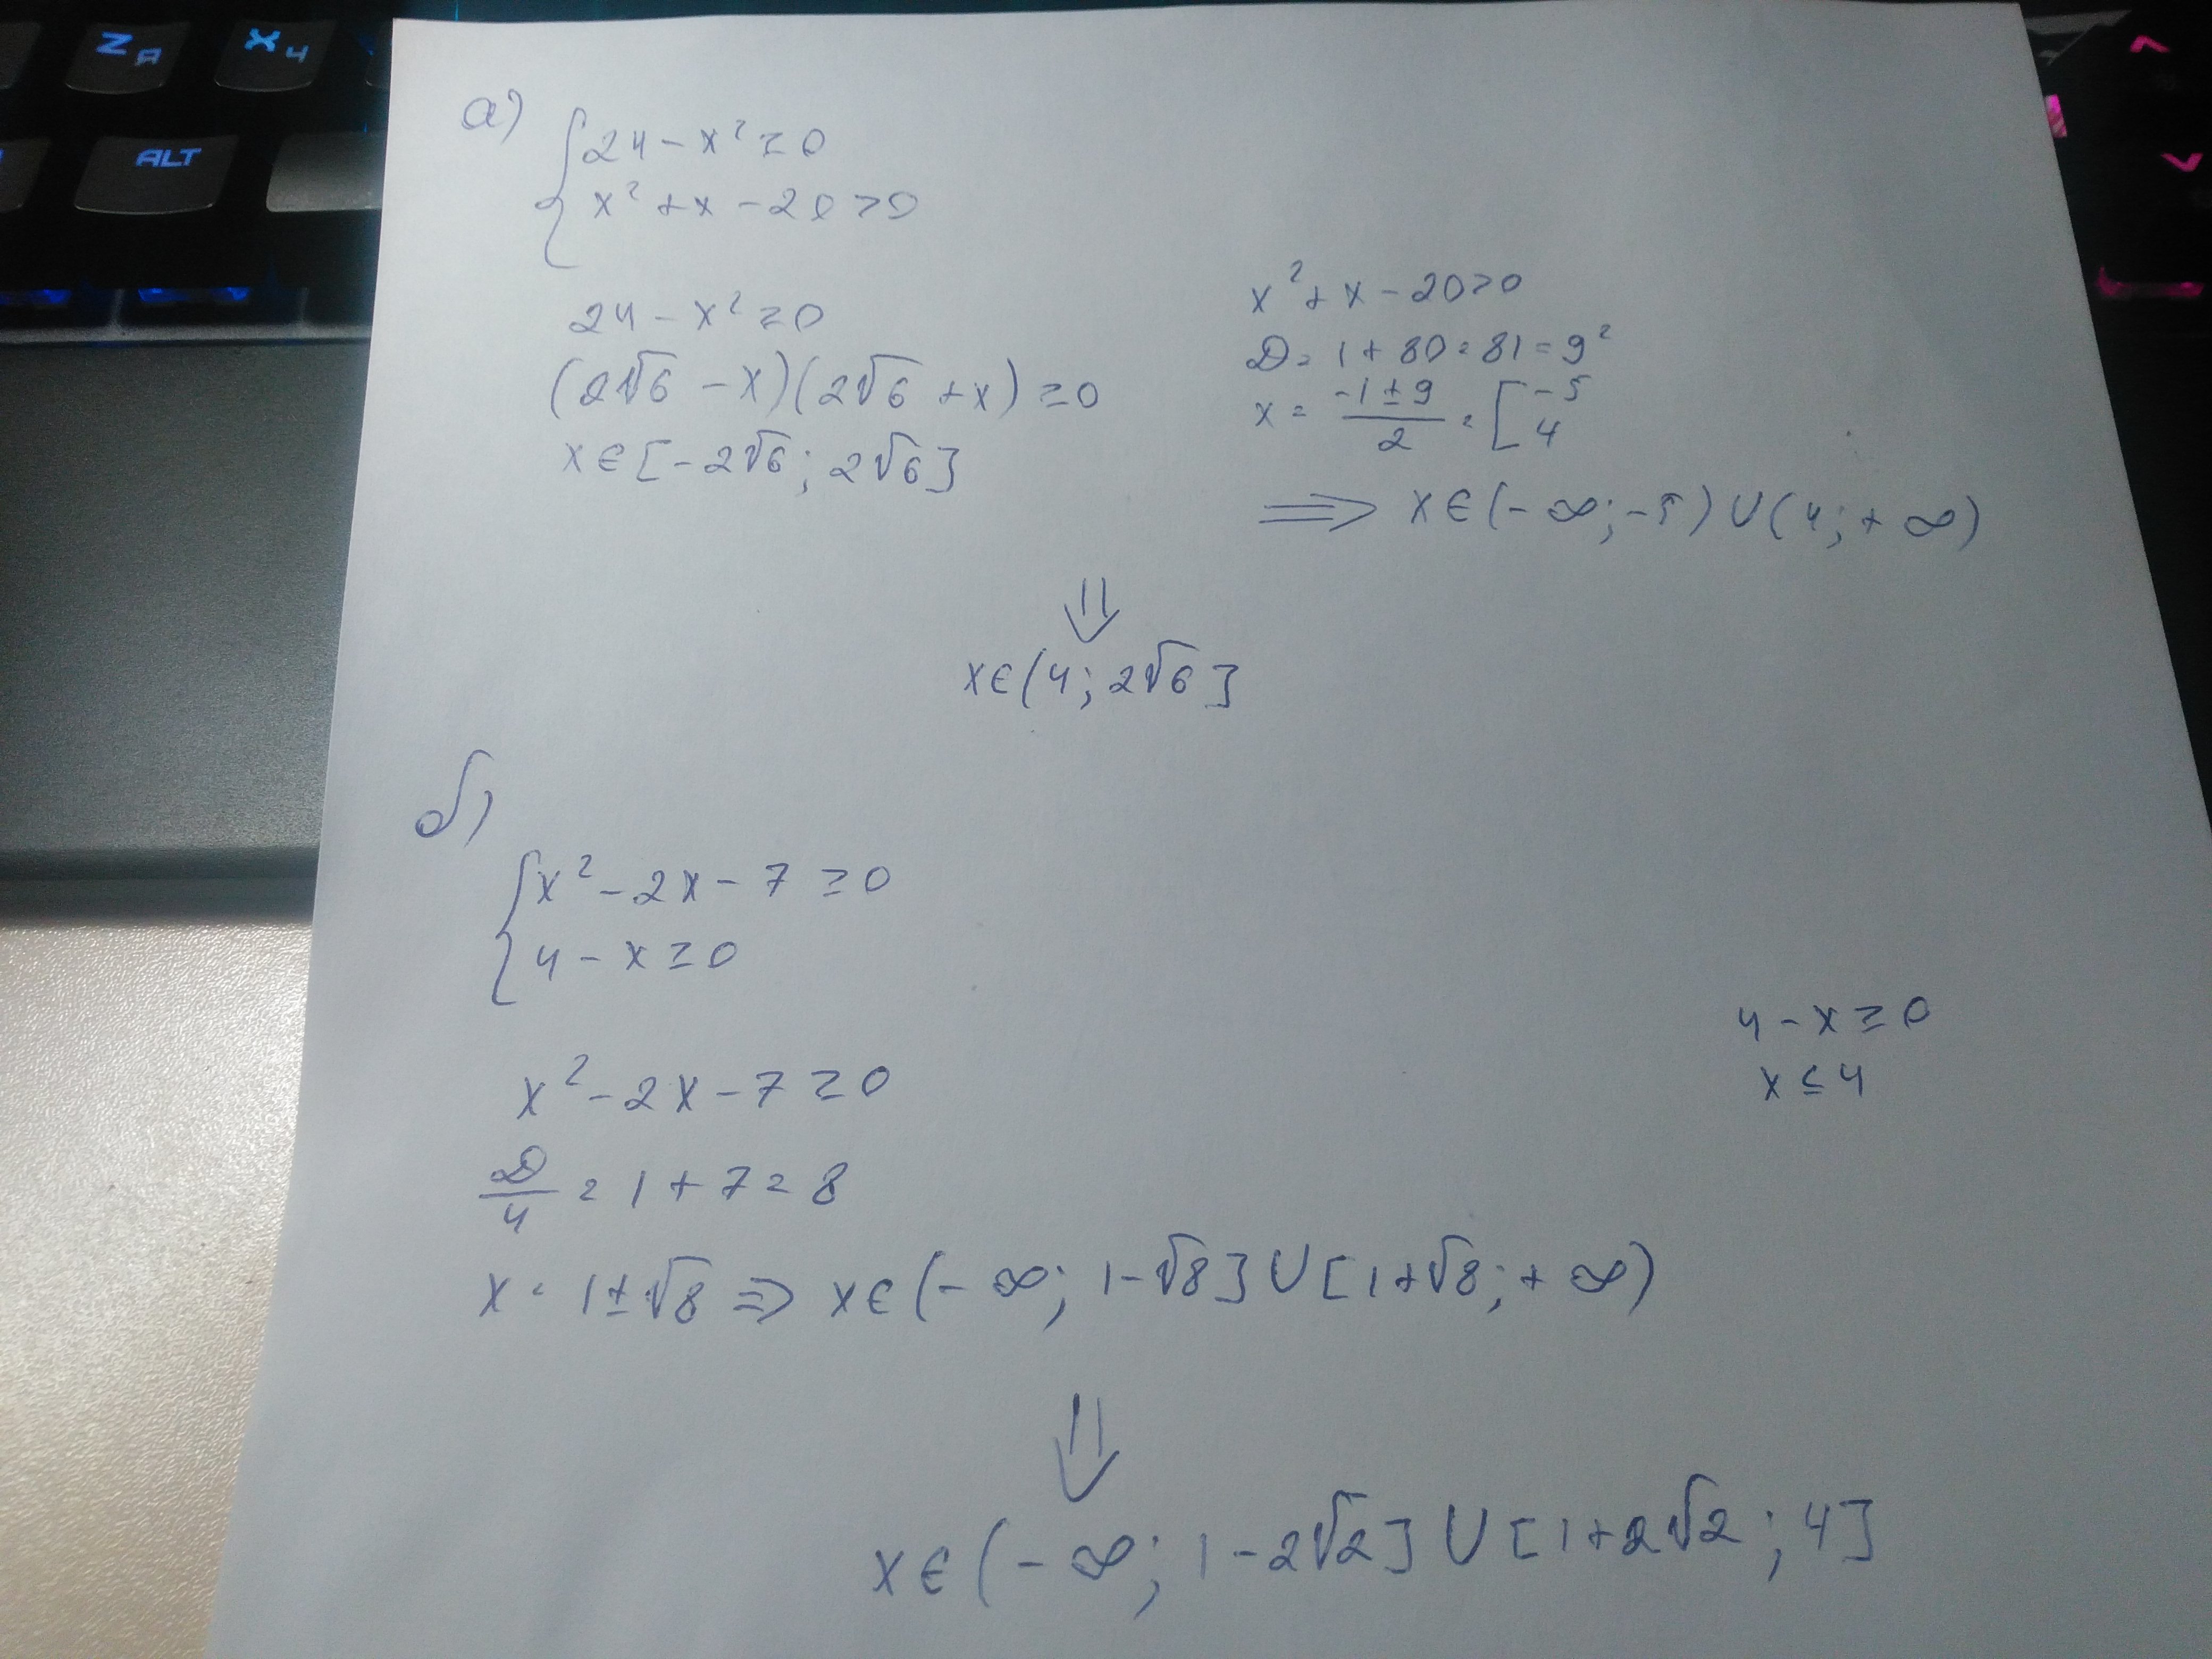 Z Я
X Ч
ALT
а)
{ 24 - x² ≥ 0
x² + x - 20 > 0
24 - x² ≥ 0
(2√6 - x)(2√6 + x) ≥ 0
x ∈ [-2√6; 2√6]
x² + x - 20 > 0
D = 1 + 80 = 81 = 9²
x = (-1 ± 9)/2 = [ -5
4
⟹ x ∈ (-∞; -5) ∪ (4; +∞)
⇓
x ∈ (4; 2√6]
б)
{ x² - 2x - 7 ≥ 0
4 - x ≥ 0
x² - 2x - 7 ≥ 0
D/4 = 1 + 7 = 8
x = 1 ± √8 ⇒ x ∈ (-∞; 1-√8] ∪ [1+√8; +∞)
4 - x ≥ 0
x ≤ 4
⇓
x ∈ (-∞; 1 - 2√2] ∪ [1 + 2√2; 4]